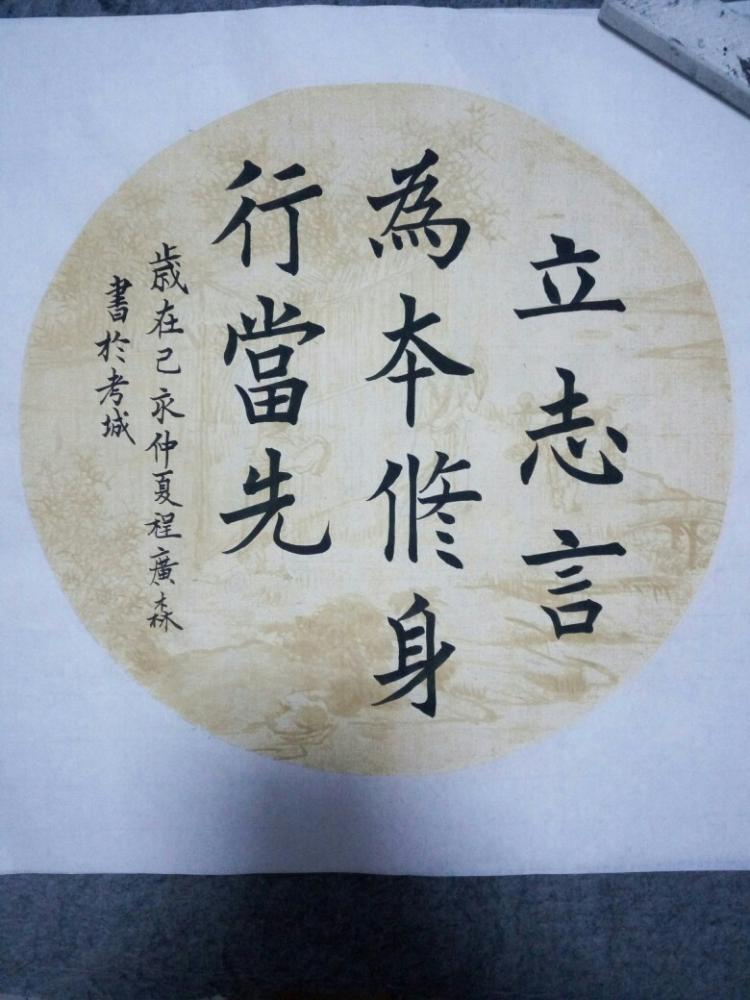 立志言
為本修身
行當先
歳在己亥仲夏程廣森
書於考城